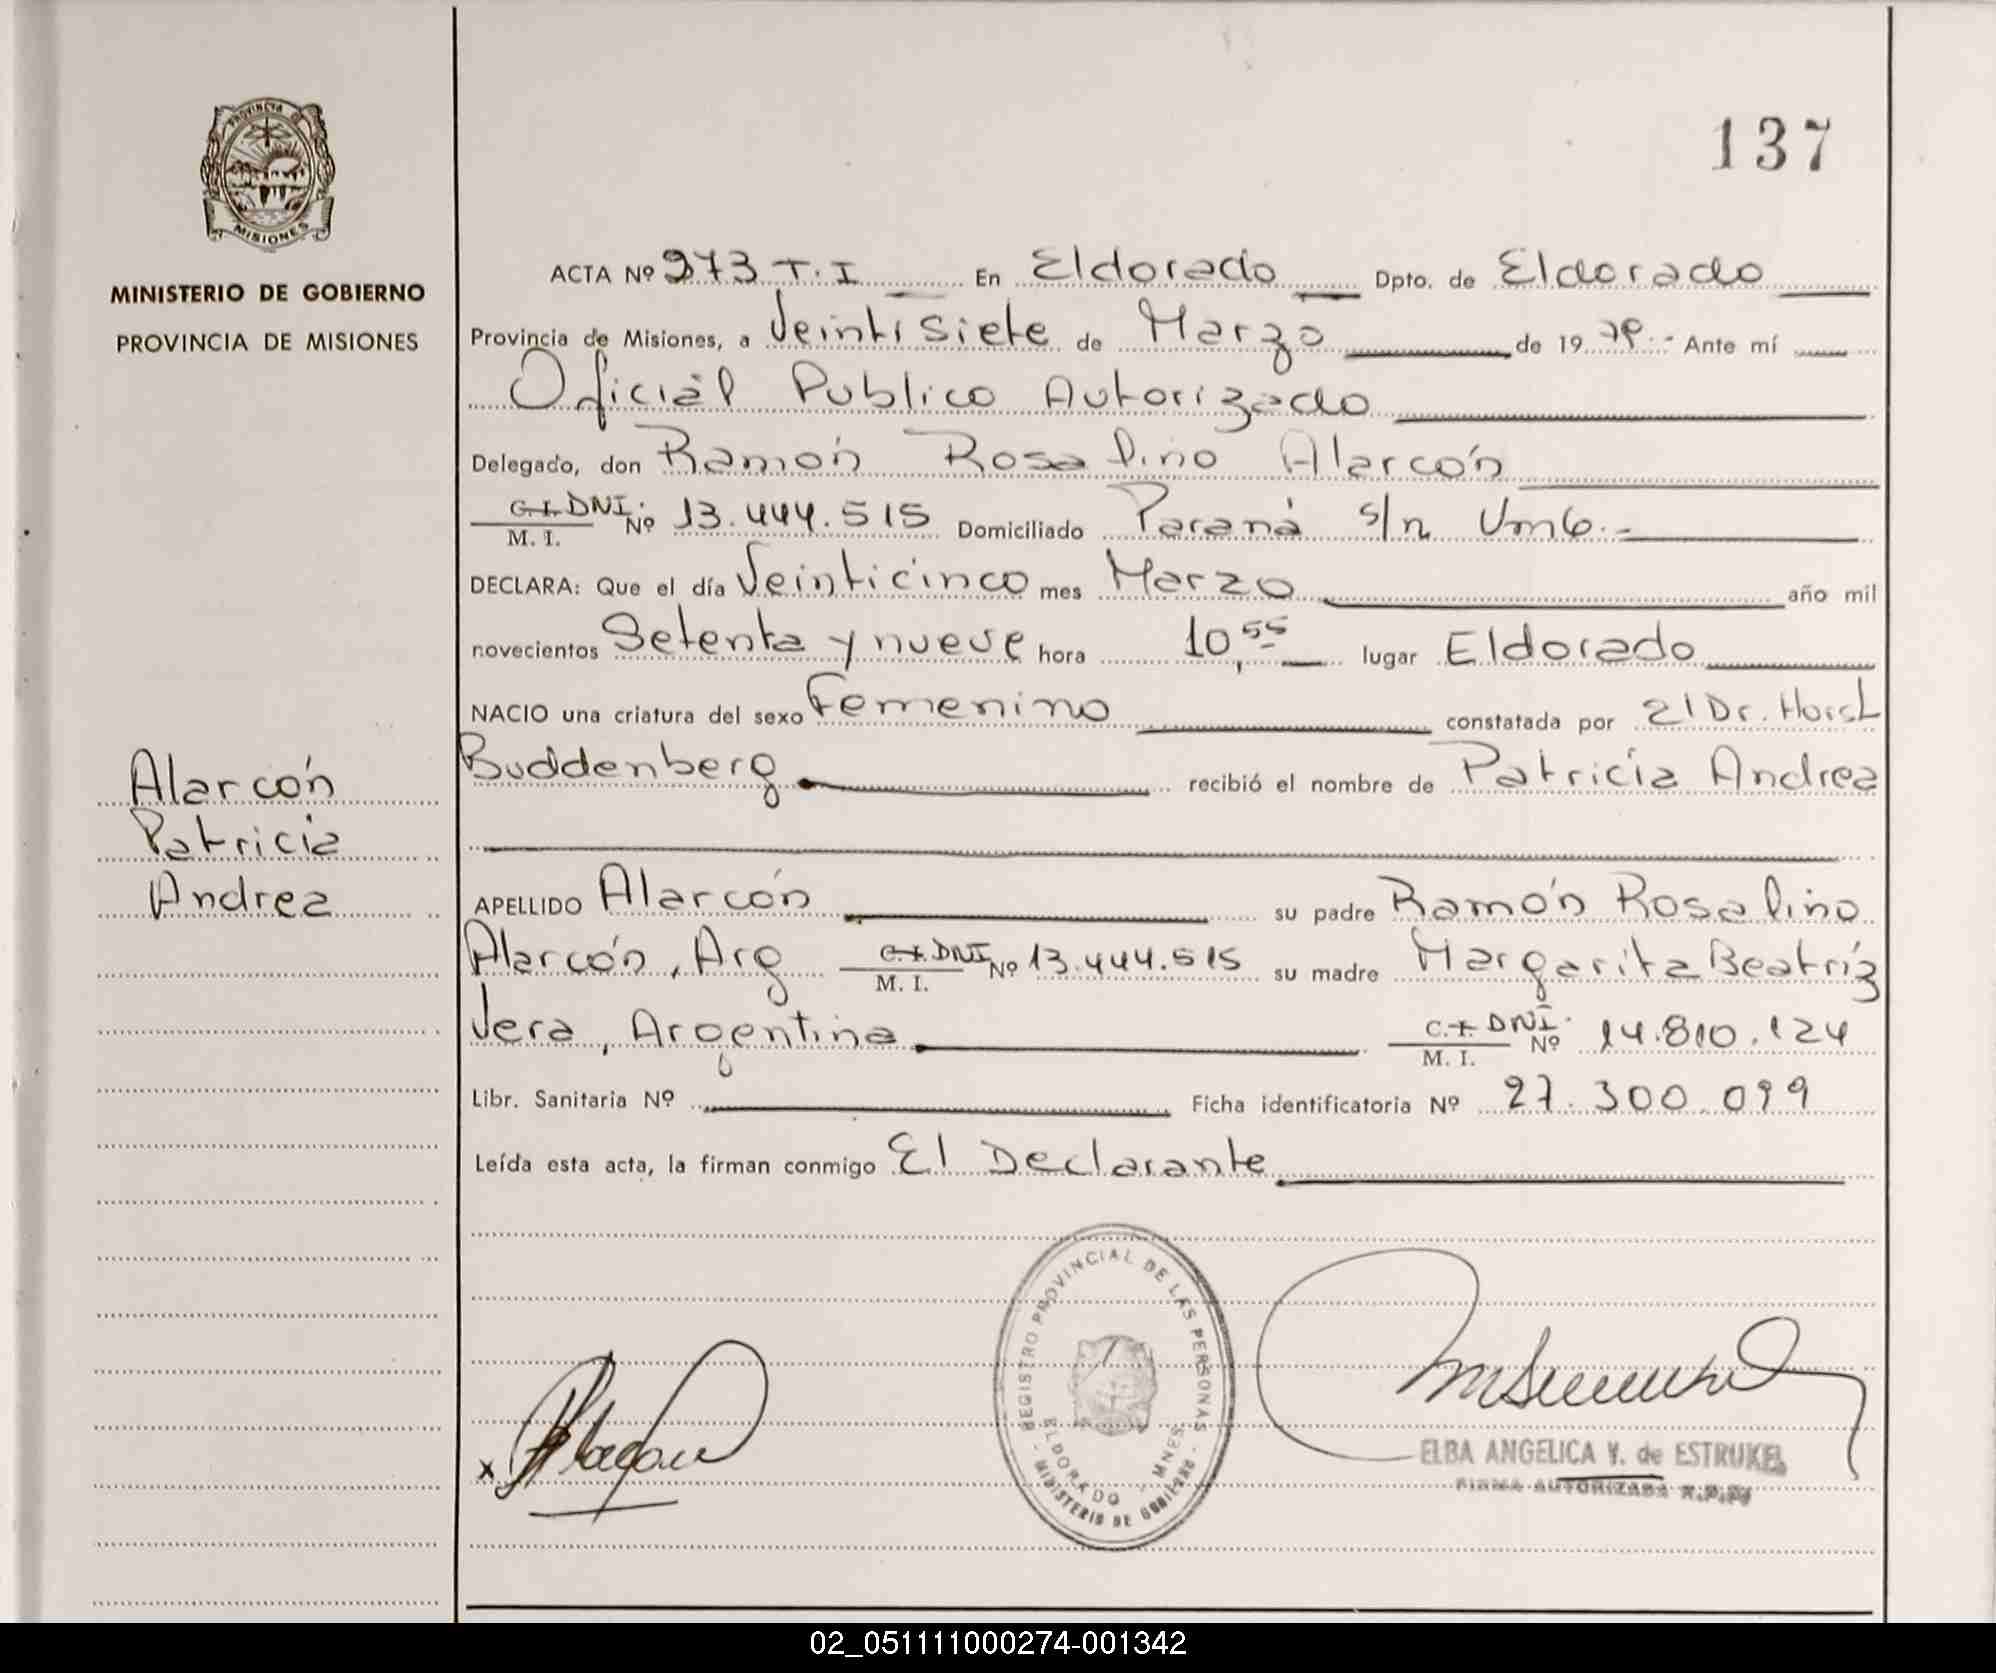 PROVINCIA DE
MISIONES
MINISTERIO DE GOBIERNO
PROVINCIA DE MISIONES
Alarcón
Patricia
Andrea
137
ACTA Nº 273 T.I En Eldorado Dpto. de Eldorado
Provincia de Misiones, a Veintisiete de Marzo de 19 79.- Ante mí
Oficial Publico Autorizado
Delegado, don Ramón Rosalino Alarcón
C.I. DNI. Nº 13.444.515 Domiciliado Paraná s/n
M. I.
DECLARA: Que el día Veinticinco mes Marzo año mil
novecientos Setenta y nueve hora 10,55 lugar Eldorado
NACIO una criatura del sexo Femenino constatada por el Dr. Horst
Buddenberg recibió el nombre de Patricia Andrea
APELLIDO Alarcón su padre Ramón Rosalino
Alarcón, Arg C.I. DNI Nº 13.444.515 su madre Margarita Beatríz
M. I.
Vera, Argentina C.I. DNI. Nº 14.810.124
M. I.
Libr. Sanitaria Nº Ficha identificatoria Nº 27.300.099
Leída esta acta, la firman conmigo El Declarante
REGISTRO PROVINCIAL DE LAS PERSONAS
ELDORADO - MNES.
- MINISTERIO DE GOBIERNO -
x
ELBA ANGELICA V. de ESTRUKEL
FIRMA AUTORIZADA R.P.P.
02_051111000274-001342